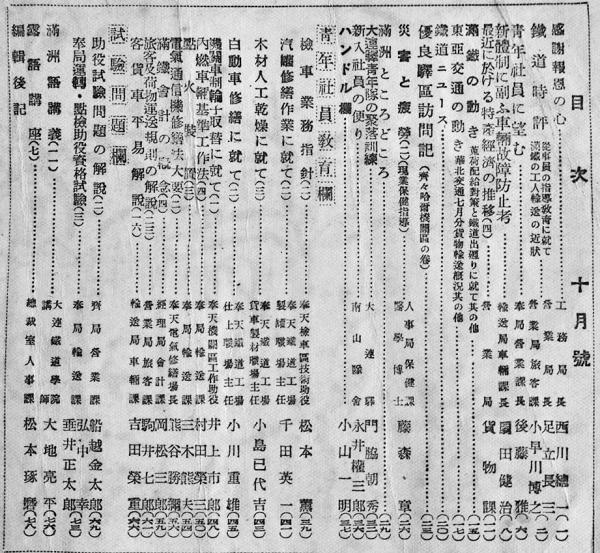 目次 十月號
感謝報恩の心 工務局長 西川總一(一)
鐵道時評 從事員の指導敎育に就て 營業局長 足立長三
滿鐵の工人輸送の近狀 營業局旅客課 小早川博之(二)
青年社員に望む 奉局營業課長 後藤雅(六)
新體制に副ふ車輛故障防止考 輸送局車輛課長 園田健治(八)
最近に於ける特產經濟の推移(四) 營業局 貨物課(一一)
滿鐵の動き 蔬荷配給對策と鐵道出廻りに就て其の他
東亞交通の動き 華北交通七月分貨物輸送概況其の他(一七)
鐵道ニュース
優良驛區訪問記(齊々哈爾機關區の卷)
災害と疲勞(二〇)(現業保健指導) 人事局保健課 醫學博士 藤森章(二六)
滿洲ところどころ
大連驛青年隊の聚落訓練 大連驛 門脇朝秀(三二)
新入社員の便り 永井權三郎
ハンドル欄 南山諍舍 小山一明(三七)
青年社員敎育欄
檢車業務指針(二) 奉天檢車區技術助役 松本薰(三九)
汽罐修繕作業に就て(二) 奉天鐵道工場 製罐職場主任 千田英一(四一)
木材人工乾燥に就て(二) 奉天鐵道工場 貨車製材職場主任 小島巳代吉(四三)
自動車修繕に就て(二) 奉天鐵道工場 仕上職場主任 小川重雄(四五)
機關車制輪子取替に就て(二) 奉天機關區工作助役 井上市郎
內燃車輛基準工作法(四) 奉局輸送課 村田榮三(五〇)
點火裝置(三) 奉局輸送課 三木熊夫
電氣通信機修繕法大要(二) 奉天電氣修繕場長 熊谷勝彌(五六)
滿鐵會計の概念(四) 經理局會計課 岡松三郎(五九)
旅客及荷物運送規則の解說(二三) 營業局旅客課 駒井七郎(六二)
客貨車平易解說(一六) 輸送局車輛課 吉田榮重(六六)
試驗問題欄
助役試驗問題の解說(二) 齊局營業課 船越金太郎(六九)
奉局運轉・點檢助役資格試驗(三) 奉局輸送課 弘中幸
垂井正太郎(七三)
滿洲語講義(一) 大連鐵道學院講師 大地亮平(七六)
露語講座(七) 總裁室人事課 松本琢磨(七八)
編輯後記